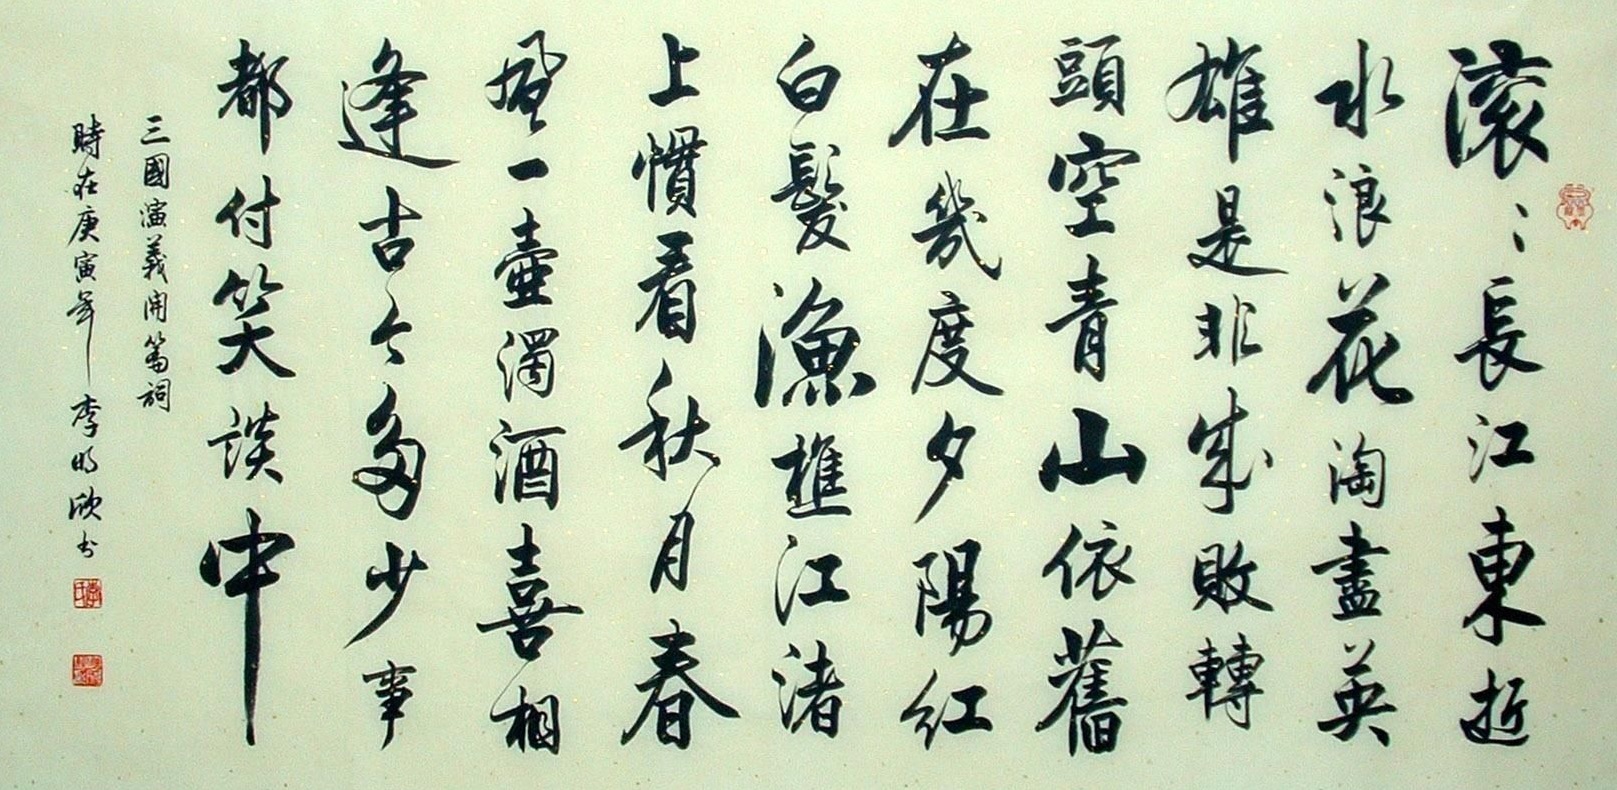 滚〻長江東逝
水浪花淘盡英
雄是非成敗轉
頭空青山依舊
在幾度夕陽紅
白髮漁樵江渚
上慣看秋月春
風一壺濁酒喜相
逢古今多少事
都付笑談中
三國演義開篇詞
時在庚寅年李明欣书